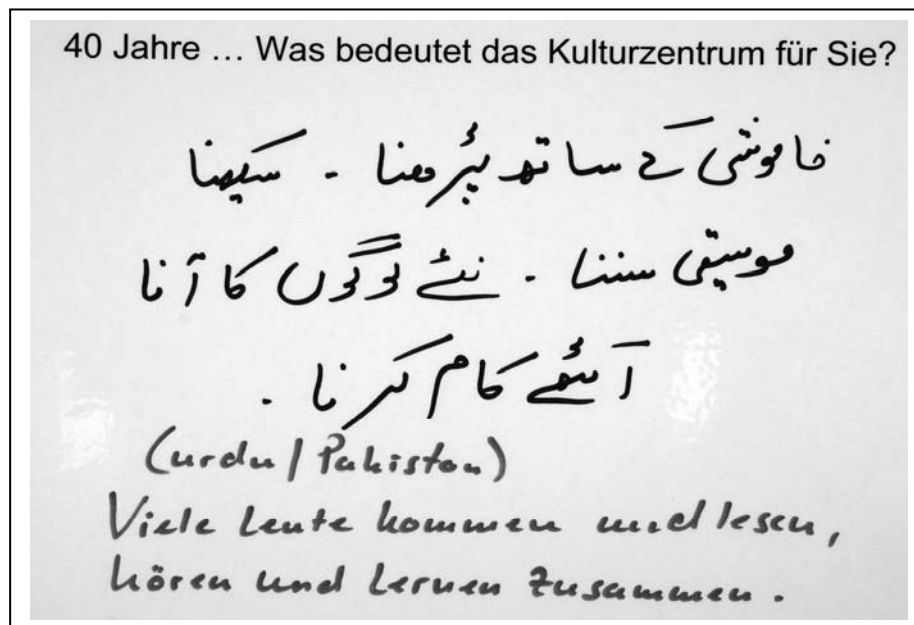 40 Jahre ... Was bedeutet das Kulturzentrum für Sie?
خاموشی کے ساتھ پڑھنا - سیکھنا
موسیقی سننا - نئے لوگوں کا آنا
کام کرنا -
(urdu/Pakistan)
Viele Leute kommen und lesen,
hören und lernen zusammen.